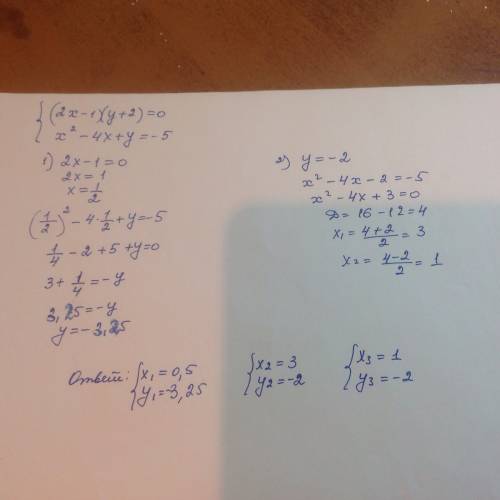 { (2x-1)(y+2)=0
x² - 4x+y=-5
1) 2x-1=0
2x=1
x=1/2
(1/2)² - 4·1/2+y=-5
1/4 - 2+5+y=0
3+1/4=-y
3,25=-y
y=-3,25
2) y=-2
x² - 4x-2=-5
x² - 4x+3=0
D= 16-12=4
x₁= (4+2)/2 = 3
x₂= (4-2)/2 = 1
Ответ: { x₁=0,5 { x₂=3 { x₃=1
y₁=-3,25 y₂=-2 y₃=-2